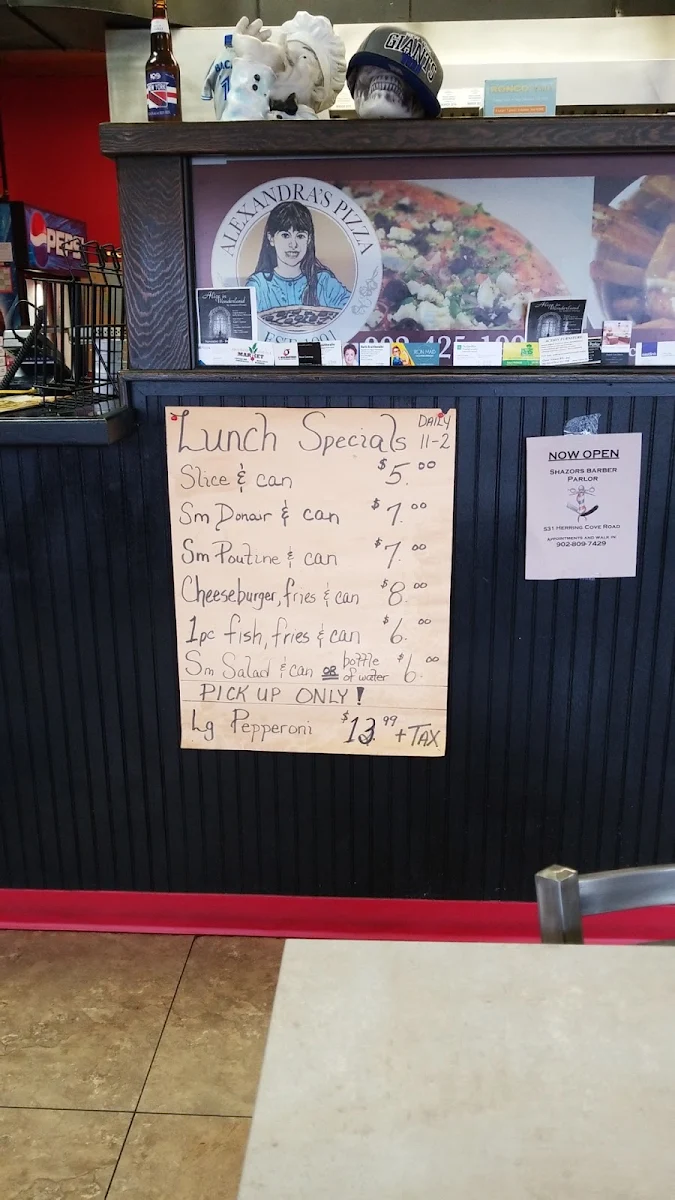 GIANTS
NEW YORK
PEPSI
ALEXANDRA'S PIZZA
EST. 1991
Alice in Wonderland
MARKET
Lunch Specials DAILY 11-2
Slice & can $5.00
Sm Donair & can $7.00
Sm Poutine & can $7.00
Cheeseburger, fries & can $8.00
1pc fish, fries & can $6.00
Sm Salad & can OR bottle of water $6.00
PICK UP ONLY!
Lg Pepperoni $13.99 + TAX
NOW OPEN
SHAZORS BARBER
PARLOR
531 HERRING COVE ROAD
APPOINTMENTS AND WALK IN
902-809-7429